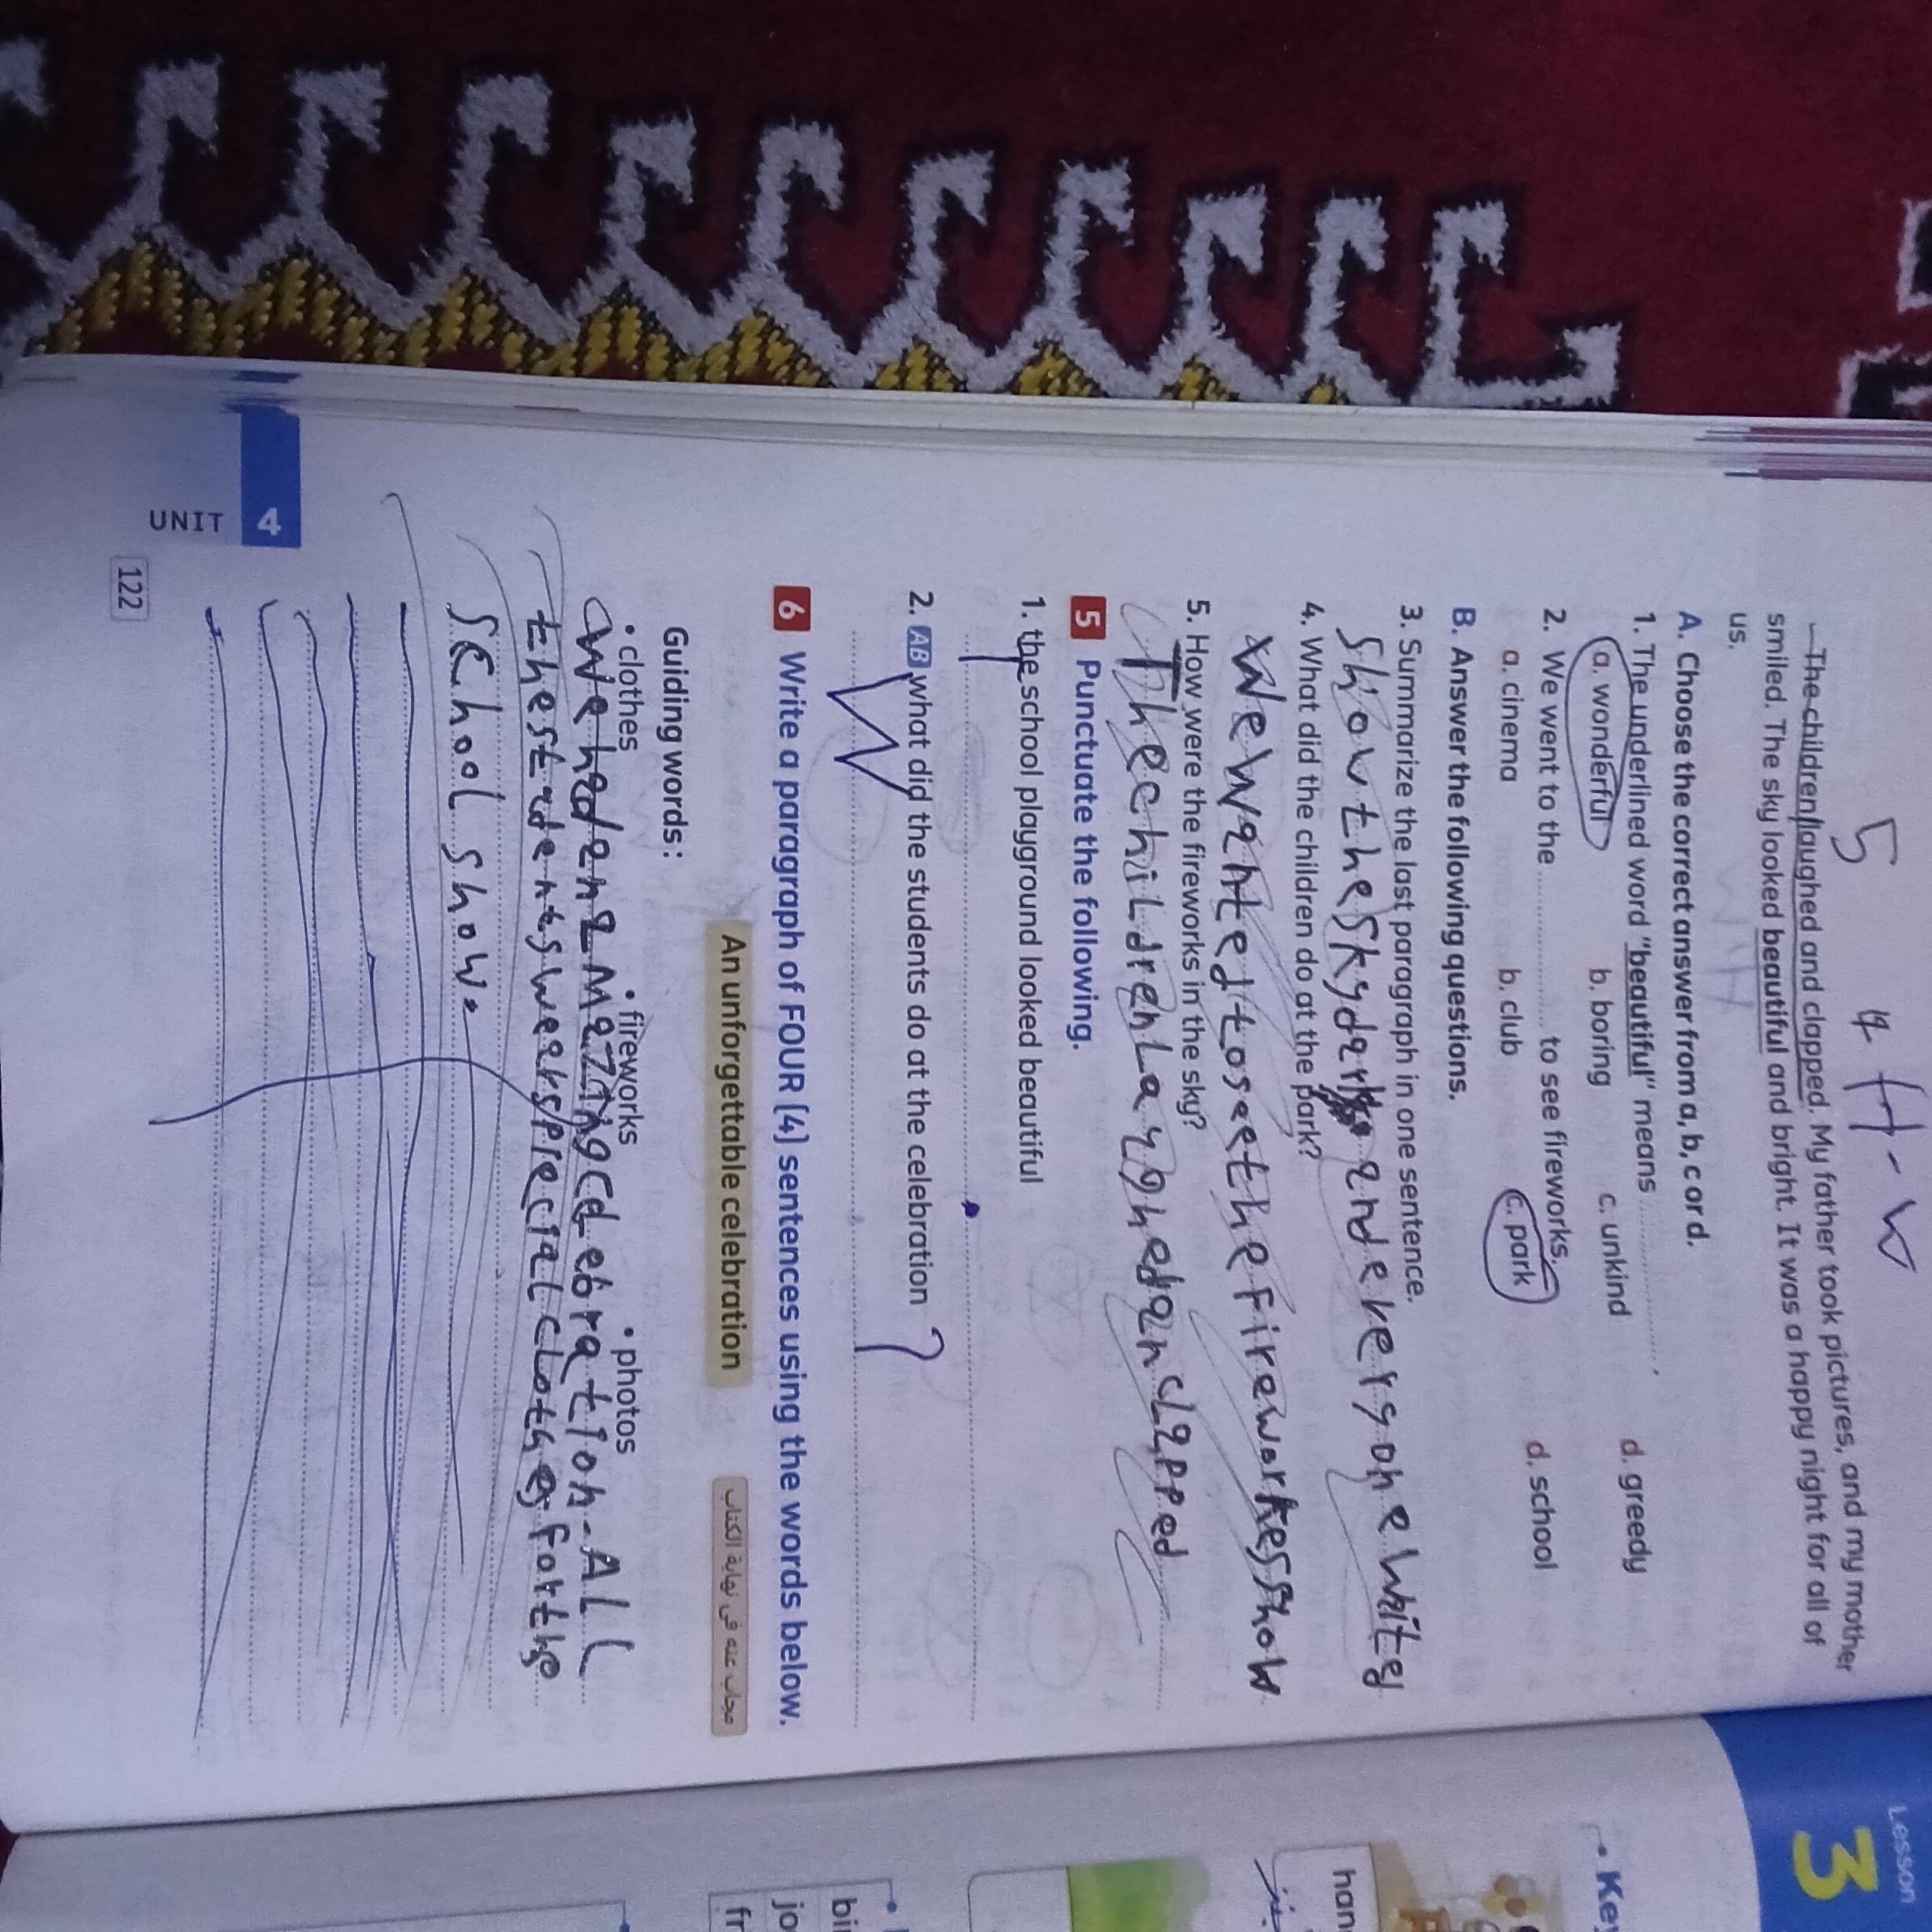 5 H-W
The children laughed and clapped. My father took pictures, and my mother
smiled. The sky looked beautiful and bright. It was a happy night for all of
us.
A. Choose the correct answer from a, b, c or d.
1. The underlined word "beautiful" means ............ .
a. wonderful b. boring c. unkind d. greedy
2. We went to the ............ to see fireworks.
a. cinema b. club c. park d. school
B. Answer the following questions.
3. Summarize the last paragraph in one sentence.
show the sky dark and everyone
4. What did the children do at the park?
We wanted to see the fireworkes show
5. How were the fireworks in the sky?
The children laughed an clapped
5 Punctuate the following.
1. the school playground looked beautiful
T .
2. AB what did the students do at the celebration ?
W
6 Write a paragraph of FOUR (4) sentences using the words below.
An unforgettable celebration مجاب عنه في نهاية الكتاب
Guiding words:
• clothes • fireworks • photos
We had an amazing celebration - All
the students wears special clothes for the
school show.
4 UNIT
122
Lesson
3
• Key
han
bi
jo
fr